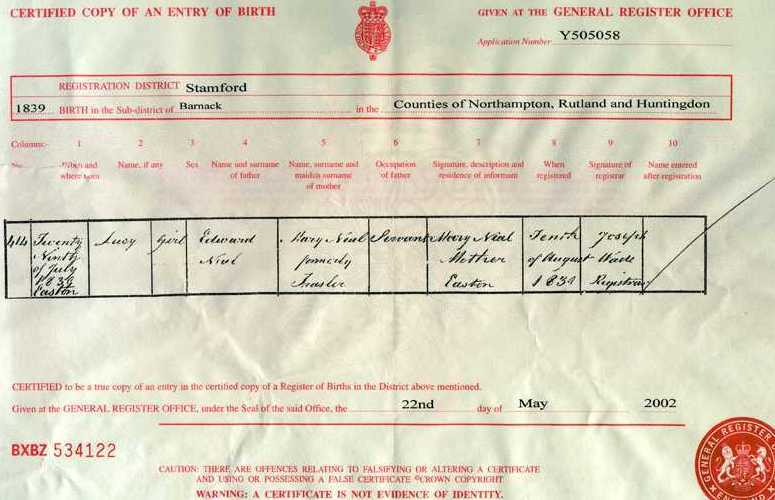 CERTIFIED COPY OF AN ENTRY OF BIRTH
GIVEN AT THE GENERAL REGISTER OFFICE
Application Number Y505058
REGISTRATION DISTRICT Stamford
1839 BIRTH in the Sub-district of Barnack in the Counties of Northampton, Rutland and Huntingdon
Columns:- 1 2 3 4 5 6 7 8 9 10
No. When and Name, if any Sex Name and surname Name, surname and Occupation Signature, description and When Signature of Name entered
where born of father maiden surname of father residence of informant registered registrar after registration
of mother
414 Twenty Lucy Girl Edward Mary Nial Servant Mary Nial Tenth Joseph
Ninth Nial formerly Mother of August Wade
of July Easton 1839 Registrar
1839
Easton
CERTIFIED to be a true copy of an entry in the certified copy of a Register of Births in the District above mentioned.
Given at the GENERAL REGISTER OFFICE, under the Seal of the said Office, the 22nd day of May 2002
BXBZ 534122
CAUTION: THERE ARE OFFENCES RELATING TO FALSIFYING OR ALTERING A CERTIFICATE
AND USING OR POSSESSING A FALSE CERTIFICATE ©CROWN COPYRIGHT
WARNING: A CERTIFICATE IS NOT EVIDENCE OF IDENTITY.
GENERAL REGISTER